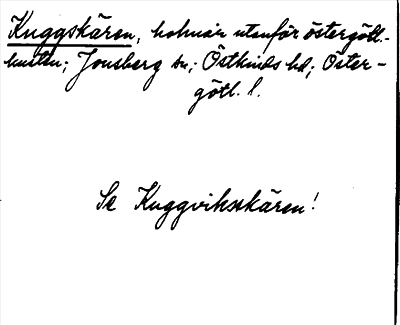 Kuggskären, holmar utanför östergötl.-
kusten; Jonsberg sn.; Östkinds hd; Öster-
götl. l.
Se Kuggviksskären!